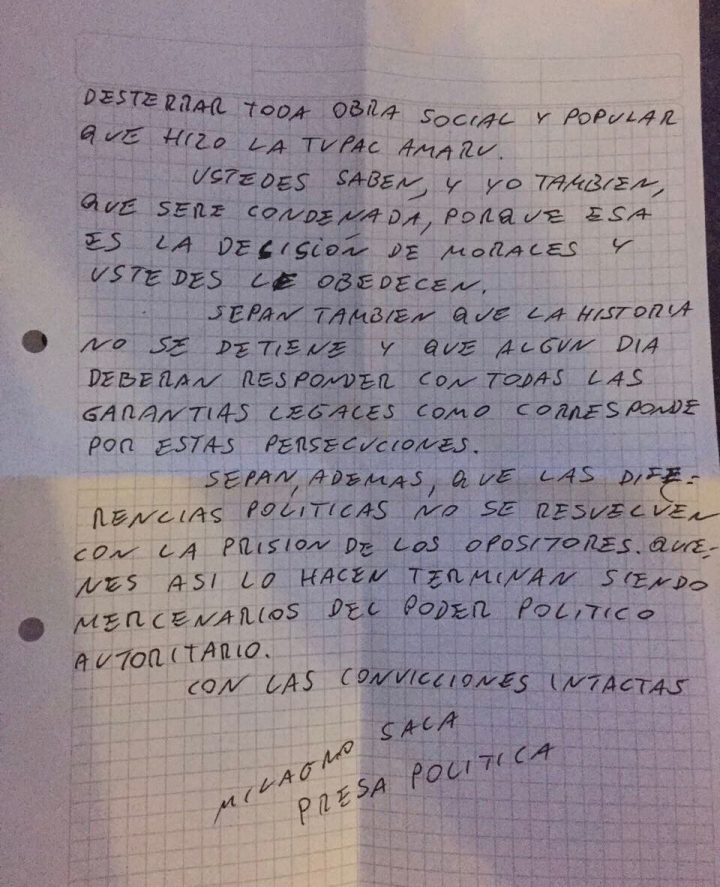 DESTERRAR TODA OBRA SOCIAL Y POPULAR
QUE HIZO LA TUPAC AMARU.
USTEDES SABEN, Y YO TAMBIEN,
QUE SERE CONDENADA, PORQUE ESA
ES LA DECISIÓN DE MORALES Y
USTEDES LE OBEDECEN.
SEPAN TAMBIEN QUE LA HISTORIA
NO SE DETIENE Y QUE ALGUN DIA
DEBERAN RESPONDER CON TODAS LAS
GARANTIAS LEGALES COMO CORRESPONDE
POR ESTAS PERSECUCIONES.
SEPAN, ADEMAS, QUE LAS DIFE-
RENCIAS POLITICAS NO SE RESUELVEN
CON LA PRISION DE LOS OPOSITORES. QUIE-
NES ASI LO HACEN TERMINAN SIENDO
MERCENARIOS DEL PODER POLITICO
AUTORITARIO.
CON LAS CONVICCIONES INTACTAS
MILAGRO SALA
PRESA POLITICA